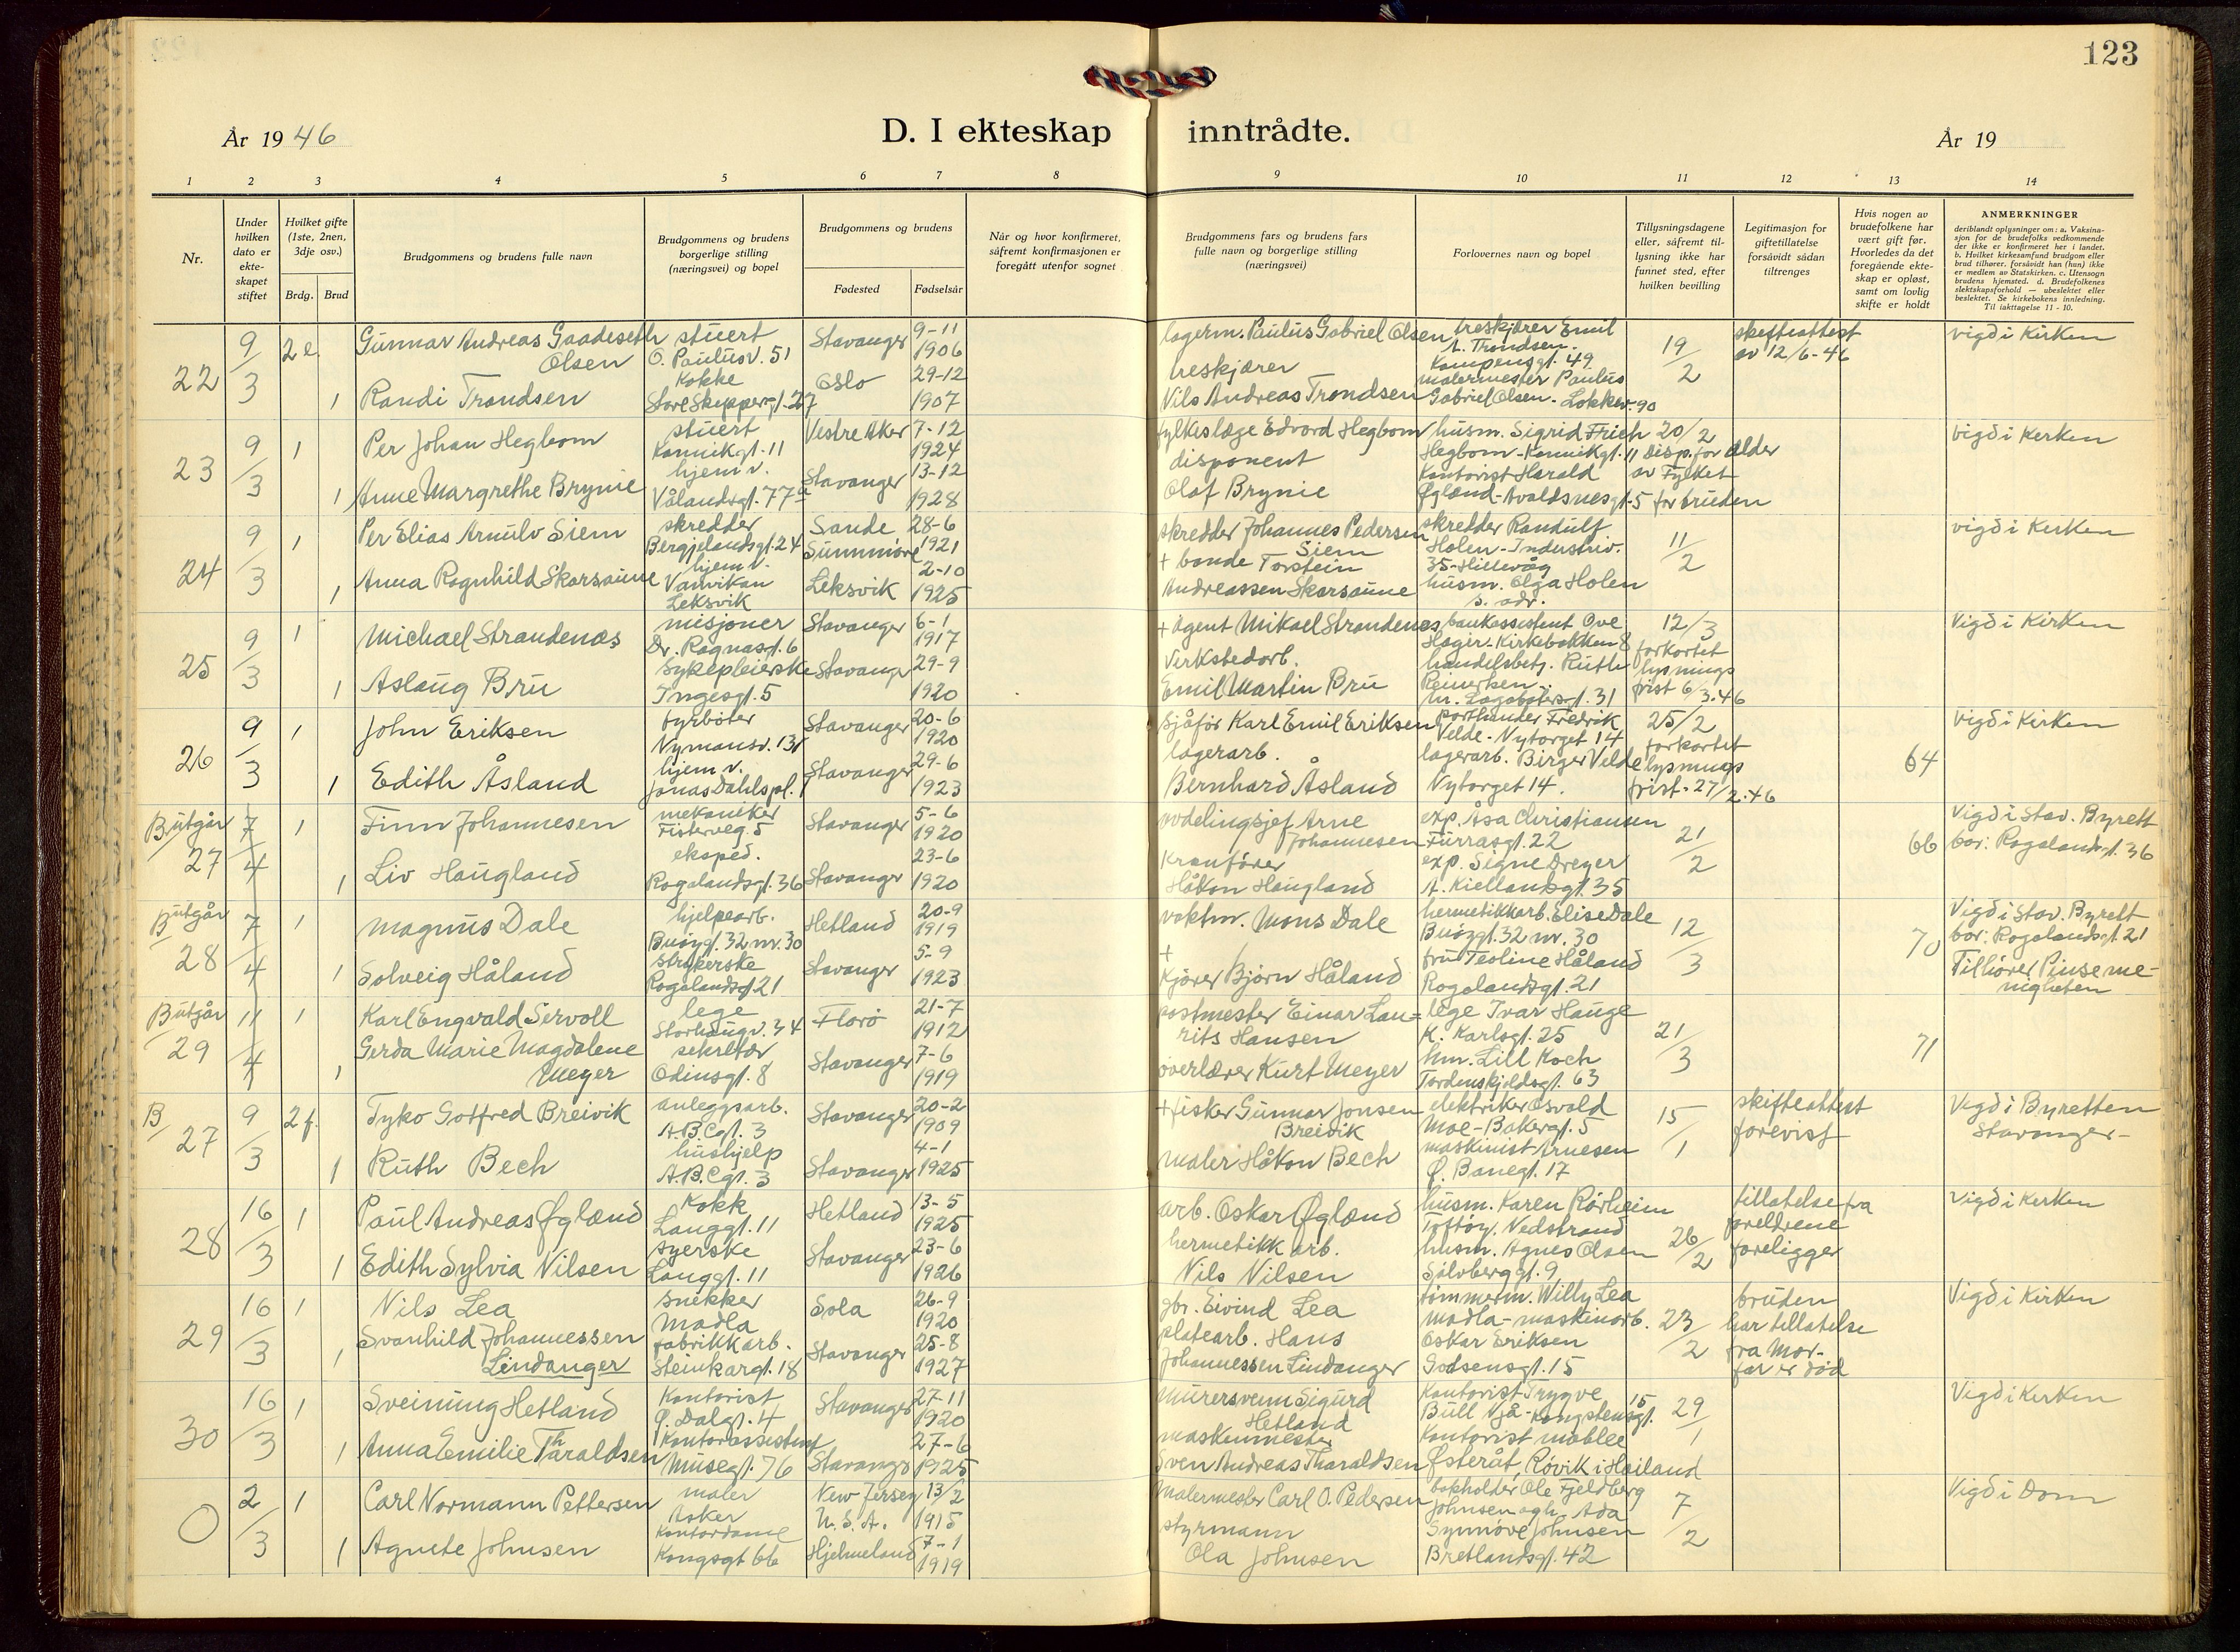 123
År 19 46
D. I ekteskap inntrådte.
År 19
1 2 3 4 5 6 7 8 9 10 11 12 13 14
Nr.
Under hvilken dato er ekteskapet stiftet
Hvilket gifte (1ste, 2nen, 3dje osv.)
Brdg. Brud
Brudgommens og brudens fulle navn
Brudgommens og brudens borgerlige stilling (næringsvei) og bopel
Brudgommens og brudens
Fødested Fødselsår
Når og hvor konfirmeret, såfremt konfirmasjonen er foregått utenfor sognet
Brudgommens fars og brudens fars fulle navn og borgerlige stilling (næringsvei)
Forlovernes navn og bopel
Tillysningsdagene eller, såfremt tillysning ikke har funnet sted, efter hvilken bevilling
Legitimasjon for giftetillatelse forsåvidt sådan tiltrenges
Hvis nogen av brudefolkene har vært gift før. Hvorledes da det foregående ekteskap er opløst, samt om lovlig skifte er holdt
ANMERKNINGER
deriblandt oplysninger om: a. Vaksinasjon for de brudefolks vedkommende der ikke er konfirmeret her i landet. b. Hvilket kirkesamfund brudgom eller brud tilhører, forsåvidt han (hun) ikke er medlem av Statskirken. c. Utensogn brudens hjemsted. d. Brudefolkenes slektskapsforhold — ubeslektet eller beslektet. Se kirkebokens innledning. Til iakttagelse 11 - 10.
22 9/3 2e. Gunnar Andreas Gaadeseth Olsen stuert O. Paulusv. 51 Stavanger 9-11 1906
1 Randi Trondsen Kokke Store Skippergt. 27 Oslo 29-12 1907
lagerm. Paulus Gabriel Olsen
treskjærer Nils Andreas Trondsen
treskjærer Emil A. Trondsen. Kampensgt. 49
malermester Paulus Gabriel Olsen - Lokkev. 90
19/2 skifteattest av 12/6-46 vigd i Kirken
23 9/3 1 Per Johan Hegbom stuert Kannikgt. 11 Vestre Aker 7-12 1924
1 Anne Margrethe Brynie hjem v. Vålandsgt. 77a Stavanger 13-12 1928
fylkeslæge Edvard Hegbom
disponent Olaf Brynie
husm. Sigrid Frich Hegbom - Kannikgt. 11
Kontorist Harald Øglænd - Avaldsnesgt. 5
20/2 Disp. for alder av Fylket for bruden vigd i Kirken
24 9/3 1 Per Elias Arnulv Siem skredder Bergjelandsgt. 24 Sande Sunnmöre 28-6 1921
1 Anna Ragnhild Skarsaune hjem v. Vanvikan Leksvik Leksvik 2-10 1925
skredder Johannes Pedersen Siem
+ bonde Torstein Andreassen Skarsaune
skredder Randulf Holen - Industriv. 35 - Hillevåg
husm. Olga Holen s. adr.
11/2 vigd i Kirken
25 9/3 1 Michael Strandenæs misjonær Dr. Ragnasgt. 6 Stavanger 6-1 1917
1 Aslaug Bru Sykepleierske Ingesgt. 5 Stavanger 29-9 1920
+ agent Mikael Strandenæs
Virkstedarb. Emil Martin Bru
bankassistent Ove Hagir - Kirkebakken 8
handelsbetj. Ruth Reinerken M. Lagabötersgt. 31
12/3 forkortet lysnings frist 6/3.46 Vigd i Kirken
26 9/3 1 John Eriksen fyrböter Nymansv. 131 Stavanger 20-6 1920
1 Edith Åsland hjem v. Jonas Dahls pl. 1 Stavanger 29-6 1923
sjåför Karl Emil Eriksen
lagerarb. Bernhard Åsland
porthander Fredrik Velde - Nytorget 14
lagerarb. Birger Velde Nytorget 14.
25/2 forkortet lysnings frist - 27/2.46 64 Vigd i Kirken
B/utgår 27 7/4 1 Finn Johannesen mekaniker Fisterveg. 5 Stavanger 5-6 1920
1 Liv Haugland eksped. Rogalandsgt. 36 Stavanger 23-6 1920
avdelingsjef Arne Johannesen
Kranförer Håkon Haugland
exp. Åsa Christiansen Furrasgt. 22
exp. Signe Dreyer A. Kiellandsgt. 35
21/2 66 Vigd i Stav. Byrett bor: Rogalandsgt. 36
B/utgår 28 7/4 1 Magnus Dale hjelpearb. Buøygt. 32 nr. 30 Hetland 20-9 1919
1 Solveig Håland strykerske Rogalandsgt 21 Stavanger 5-9 1923
vaktm. Mons Dale
+ Kjörer Björn Håland
hermetikkarb. Elise Dale Buøygt. 32 nr. 30
fru Teoline Håland Rogalandsgt. 21
12/3 70 Vigd i Stav. Byrett bor: Rogalandsgt. 21 Tilhörer Pinsemenigheten
B/utgår 29 11/4 1 Karl Engvald Servoll lege Storhaugv. 34 Florö 21-7 1912
1 Gerda Marie Magdalene Meyer sekretær Odinsgt. 8 Stavanger 7-6 1919
postmester Einar Laurits Hansen
overlærer Kurt Meyer
lege Ivar Hauge K. Karlsgt. 25
hm. Lill Koch Tordenskjoldsgt. 63
21/3 71
B/27 9/3 2f. Tyko Gotfred Breivik anleggsarb. A.B.Cgt. 3 Stavanger 20-2 1909
1 Ruth Bech hushjelp A.B.Cgt. 3 Stavanger 4-1 1925
+ fisker Gunnar Jonsen Breivik
maler Håkon Bech
elektriker Osvald Moe - Bakergt. 5
maskinist Arnesen Ø. Banegt. 17
15/1 skifteattest forevist Vigd i Byretten Stavanger -
28 16/3 1 Paul Andreas Øglænd Kokk Langgt. 11 Hetland 13-5 1925
1 Edith Sylvia Nilsen syerske Langgt. 11 Stavanger 23-6 1926
arb. Oskar Øglænd
hermetikk arb. Nils Nilsen
husm. Karen Rörheim Toftöy. Nedstrand
husm. Agnes Olsen Sölvberggt. 9
26/2 tillatelse fra foreldrene foreligger Vigd i Kirken
29 16/3 1 Nils Lea Snekker Madla Sola 26-9 1920
1 Svanhild Johannessen Lindanger fabrikkarb. Steinkargt. 18 Stavanger 25-8 1927
gbr. Eivind Lea
platearb. Hans Johannessen Lindanger
tömmerm. Willy Lea Madla - maskinarb. Oskar Eriksen Godsensgt. 15
23/2 bruden har tillatelse fra Mor - far er död Vigd i Kirken
30 16/3 1 Sveinung Hetland Kontorist Ø. Dalgt. 4 Stavanger 27-11 1920
1 Anna Emilie Tharaldsen Kontorassistent Musegt. 76 Stavanger 27-6 1925
murersvenn Sigurd Hetland
maskinmester Sven Andreas Tharaldsen
Kontorist Trygve Bull Njå - Kongstensgt. 15
Kontorist Østeråt, Rövik i Høiland
29/1 Vigd i Kirken
0 2/3 1 Carl Normann Pettersen maler Asker New Jersey U.S.A. 13/2 1915
1 Agnete Johnsen Kontordame Kongsgt 66 Hjelmeland 7-1 1919
Malermester Carl O. Pedersen
styrmann Ola Johnsen
bokholder Ole Fjeldberg Johnsen og h. Ada Synnöve Johnsen Bretlandsgt. 42
7/2 Vigd i Dom